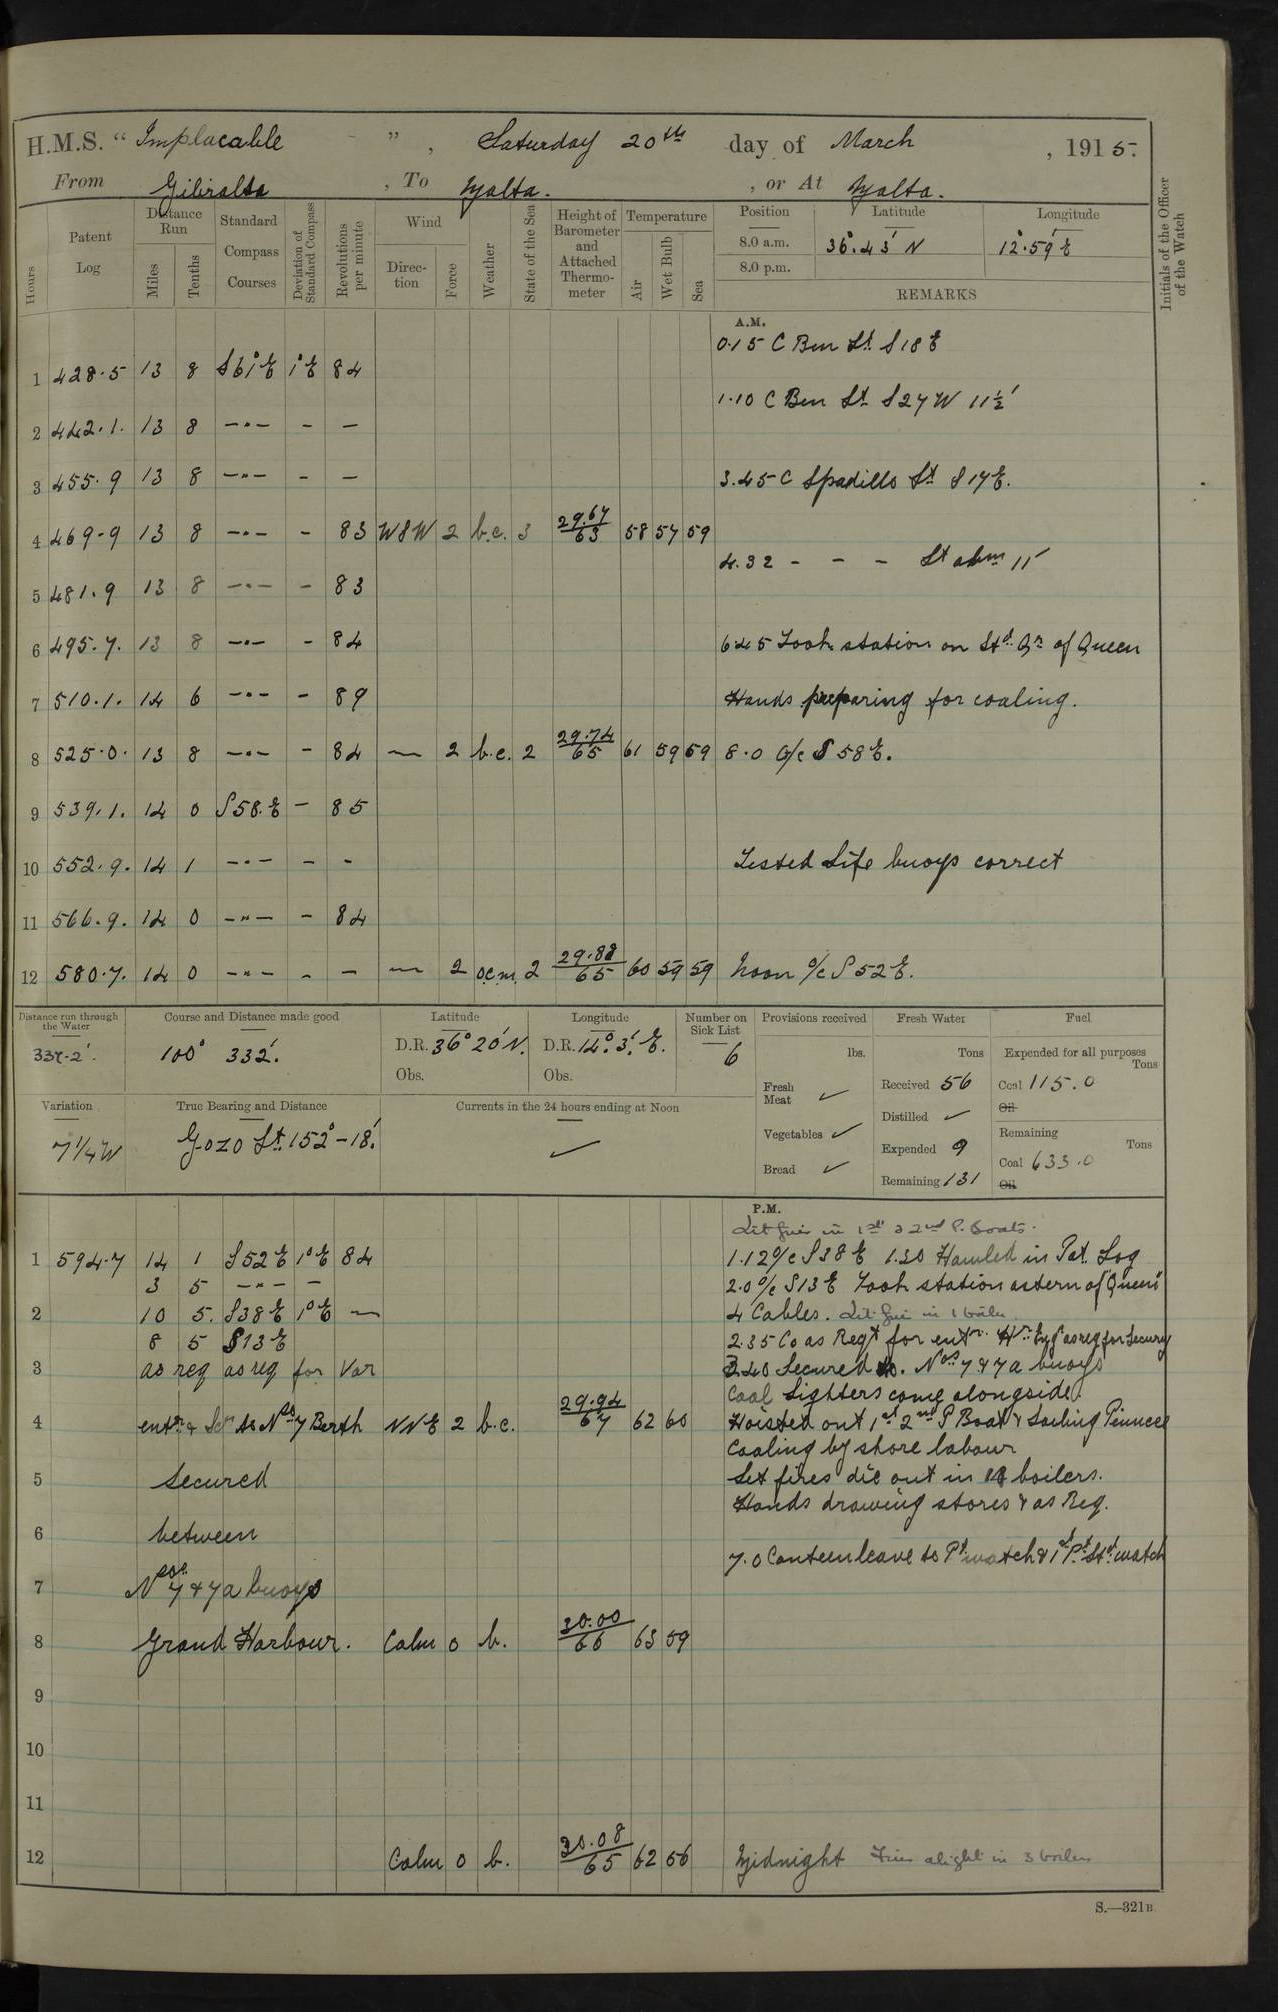 H.M.S. "Implacable", Saturday 20th day of March, 1915.
From Gibralta, To Malta., or At Malta.
Hours
Patent Log
Distance Run
Miles
Tenths
Standard Compass Courses
Deviation of Standard Compass
Revolutions per minute
Wind
Direction
Force
Weather
State of the Sea
Height of Barometer and Attached Thermometer
Temperature
Air
Wet Bulb
Sea
Position
Latitude
Longitude
8.0 a.m. 36°.43' N 12°.59' E
8.0 p.m.
REMARKS
Initials of the Officer of the Watch
A.M.
0.15 C Bon Lt. S 18 E
1 428.5 13 8 S 61° E 1° E 84
1.10 C Bon Lt S 27 W 11½'
2 442.1. 13 8 —"— - —
3 455.9 13 8 —"— - — 3.45 C Spadillo Lt S 17 E.
4 469.9 13 8 —"— - 83 WSW 2 b.c. 3 29.67/63 58 57 59
4.32 - - - Lt abm 11'
5 481.9 13 8 —"— - 83
6 495.7. 13 8 —"— - 84 6.45 Took station on Std. Qr of Queen
7 510.1. 14 6 —"— - 89 Hands preparing for coaling.
8 525.0. 13 8 —"— - 84 — 2 b.c. 2 29.74/65 61 59 59 8.0 a/c S 58 E.
9 539.1. 14 0 S 58. E - 85
10 552.9. 14 1 —"— - - Tested Life buoys correct
11 566.9. 14 0 —"— - 84
12 580.7. 14 0 —"— - — — 2 o.c.m. 2 29.88/65 60 59 59 Noon a/c S 52 E.
Distance run through the Water
Course and Distance made good
Latitude
Longitude
Number on Sick List
Provisions received
Fresh Water
Fuel
100° 332'.
D.R. 36° 20' N.
D.R. 14°. 3'. E.
6
Obs.
Obs.
lbs.
Tons
Expended for all purposes
Tons
Fresh Meat ✓
Received 56
Coal 115.0
Oil
Variation
True Bearing and Distance
Currents in the 24 hours ending at Noon
Distilled ✓
Remaining
Tons
7¼ W
Gozo Lt. 152° - 18'.
✓
Vegetables ✓
Expended 9
Coal 633.0
Bread ✓
Remaining 131
Oil
P.M.
Lit fires in 1st & 2nd P. Boats.
1 594.7 14 1 S 52 E 1° E 84 1.12 a/c S 38 E 1.30 Hauled in Pat. Log
3 5 —"— — 2.0 a/c S 13 E Took station astern of "Queen"
2 10 5. S 38 E 1° E — 4 Cables. Lit fire in 1 boiler
8 5 S 13 E 2.35 Co as Reqt for entr. Hr. as req for Securg
3 as req as req for Var 3.40 Secured to. Nos 7 & 7a buoys
Coal Lighters came alongside.
4 entr. & Secr to No 7 Berth NNE 2 b.c. 29.94/67 62 60 Hoisted out 1st 2nd P Boat & Sailing Pinnace
Coaling by shore labour
5 Secured Let fires die out in boilers.
Hands drawing stores & as Req.
6 between
7.0 Canteen leave to Pt. watch & 1st Pt. Std. watch
7 Nos 7 & 7a buoys
8 Grand Harbour. Calm 0 b. 30.00/66 63 59
9
10
11
12 Calm 0 b. 30.08/65 62 56 Midnight Fires alight in 3 boilers
S.—321B.